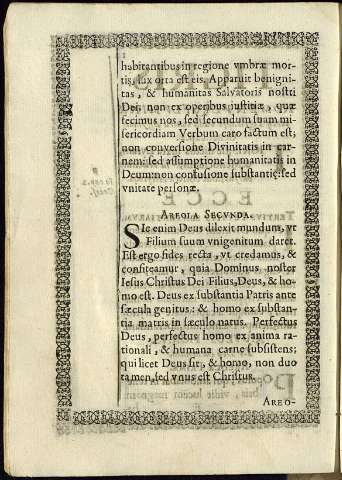 habitantibus in regione vmbræ mor-
tis, lux orta est eis. Apparuit benigni-
tas, & humanitas Salvatoris nostri
Dei, non ex operibus justitiæ, quæ
fecimus nos, sed secundum suam mi-
sericordiam Verbum caro factum est,
non conversione Divinitatis in car-
nem: sed assumptione humanitatis in
Deum: non confusione substantię: sed
vnitate personæ.
AREOLA SECVNDA.
SIc enim Deus dilexit mundum, vt
Filium suum vnigenitum daret.
Est ergo fides recta, vt credamus, &
confiteamur, quia Dominus noster
Iesus Christus Dei Filius, Deus, & ho-
mo est. Deus ex substantia Patris ante
sæcula genitus: & homo ex substan-
tia matris in sæculo natus. Perfectus
Deus, perfectus homo ex anima ra-
tionali, & humana carne subsistens;
qui licet Deus sit, & homo, non duo
tamen, sed vnus est Christus.
AREO-